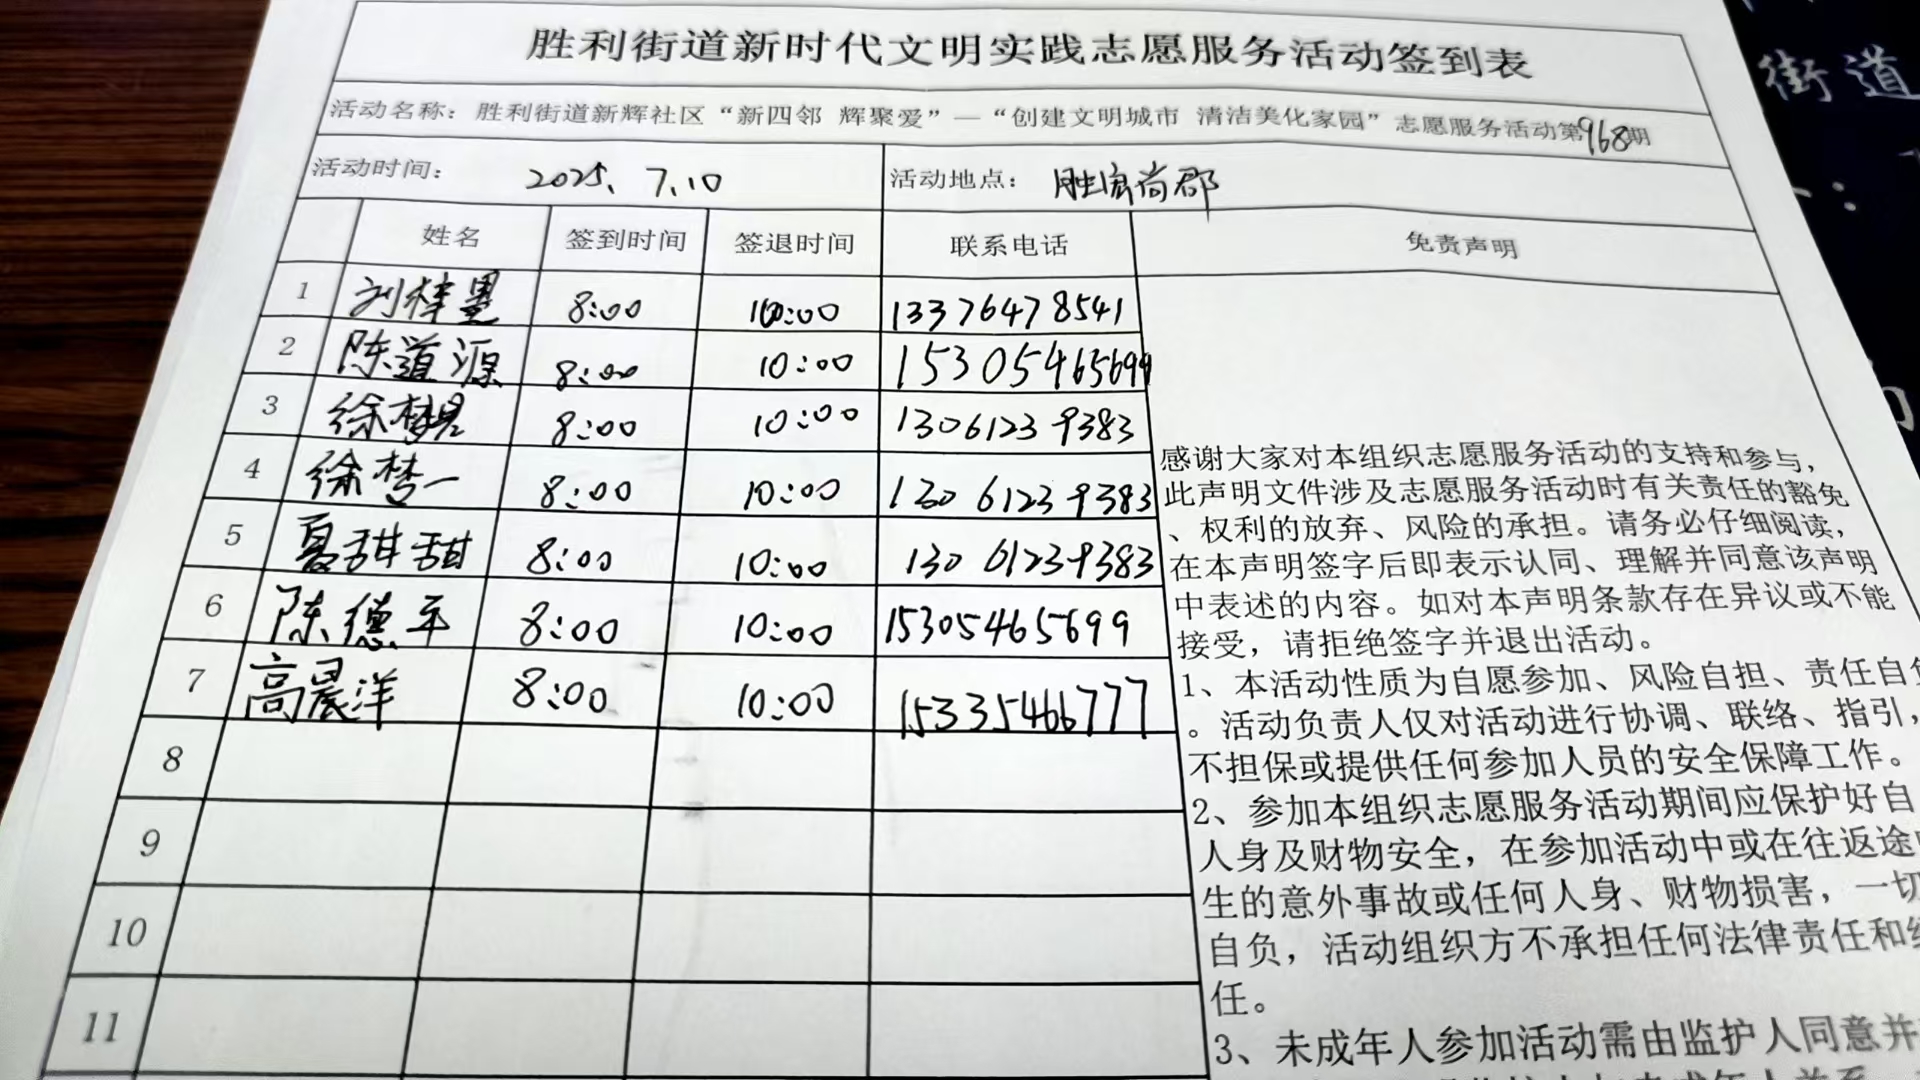 胜利街道新时代文明实践志愿服务活动签到表
活动名称：胜利街道新辉社区“新四邻 辉聚爱”—“创建文明城市 清洁美化家园”志愿服务活动第968期
活动时间： 2025.7.10 活动地点： 胜宏尚郡
姓名 签到时间 签退时间 联系电话 免责声明
1 刘梓墨 8:00 10:00 13376478541
2 陈道源 8:00 10:00 15305465699
3 徐梦 8:00 10:00 13061239383
4 徐梦一 8:00 10:00 13061239383
5 夏甜甜 8:00 10:00 13061239383
6 陈德平 8:00 10:00 15305465699
7 高晨洋 8:00 10:00 15335466777
8
9
10
11
感谢大家对本组织志愿服务活动的支持和参与，
此声明文件涉及志愿服务活动时有关责任的豁免
、权利的放弃、风险的承担。请务必仔细阅读，
在本声明签字后即表示认同、理解并同意该声明
中表述的内容。如对本声明条款存在异议或不能
接受，请拒绝签字并退出活动。
1、本活动性质为自愿参加、风险自担、责任自负
。活动负责人仅对活动进行协调、联络、指引，
不担保或提供任何参加人员的安全保障工作。
2、参加本组织志愿服务活动期间应保护好自
人身及财物安全，在参加活动中或在往返途
生的意外事故或任何人身、财物损害，一切
自负，活动组织方不承担任何法律责任和
任。
3、未成年人参加活动需由监护人同意并
街道